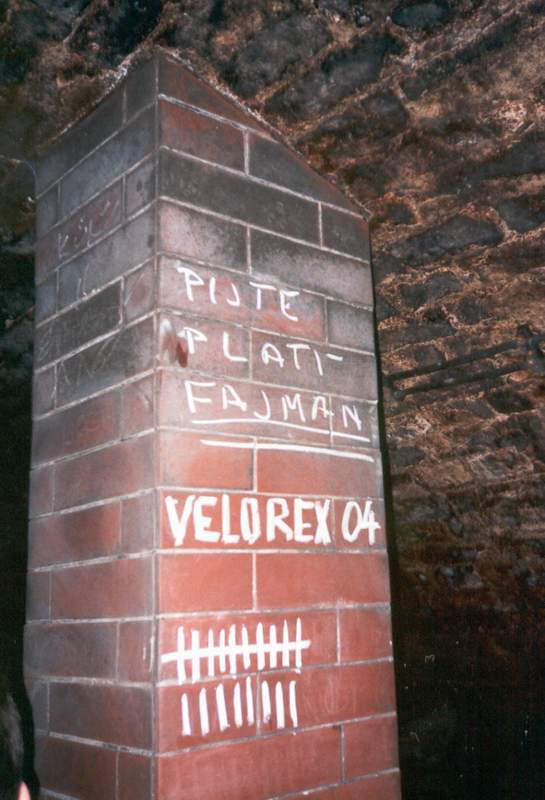 PIJTE
PLATI-
FAJMAN
VELOREX 04